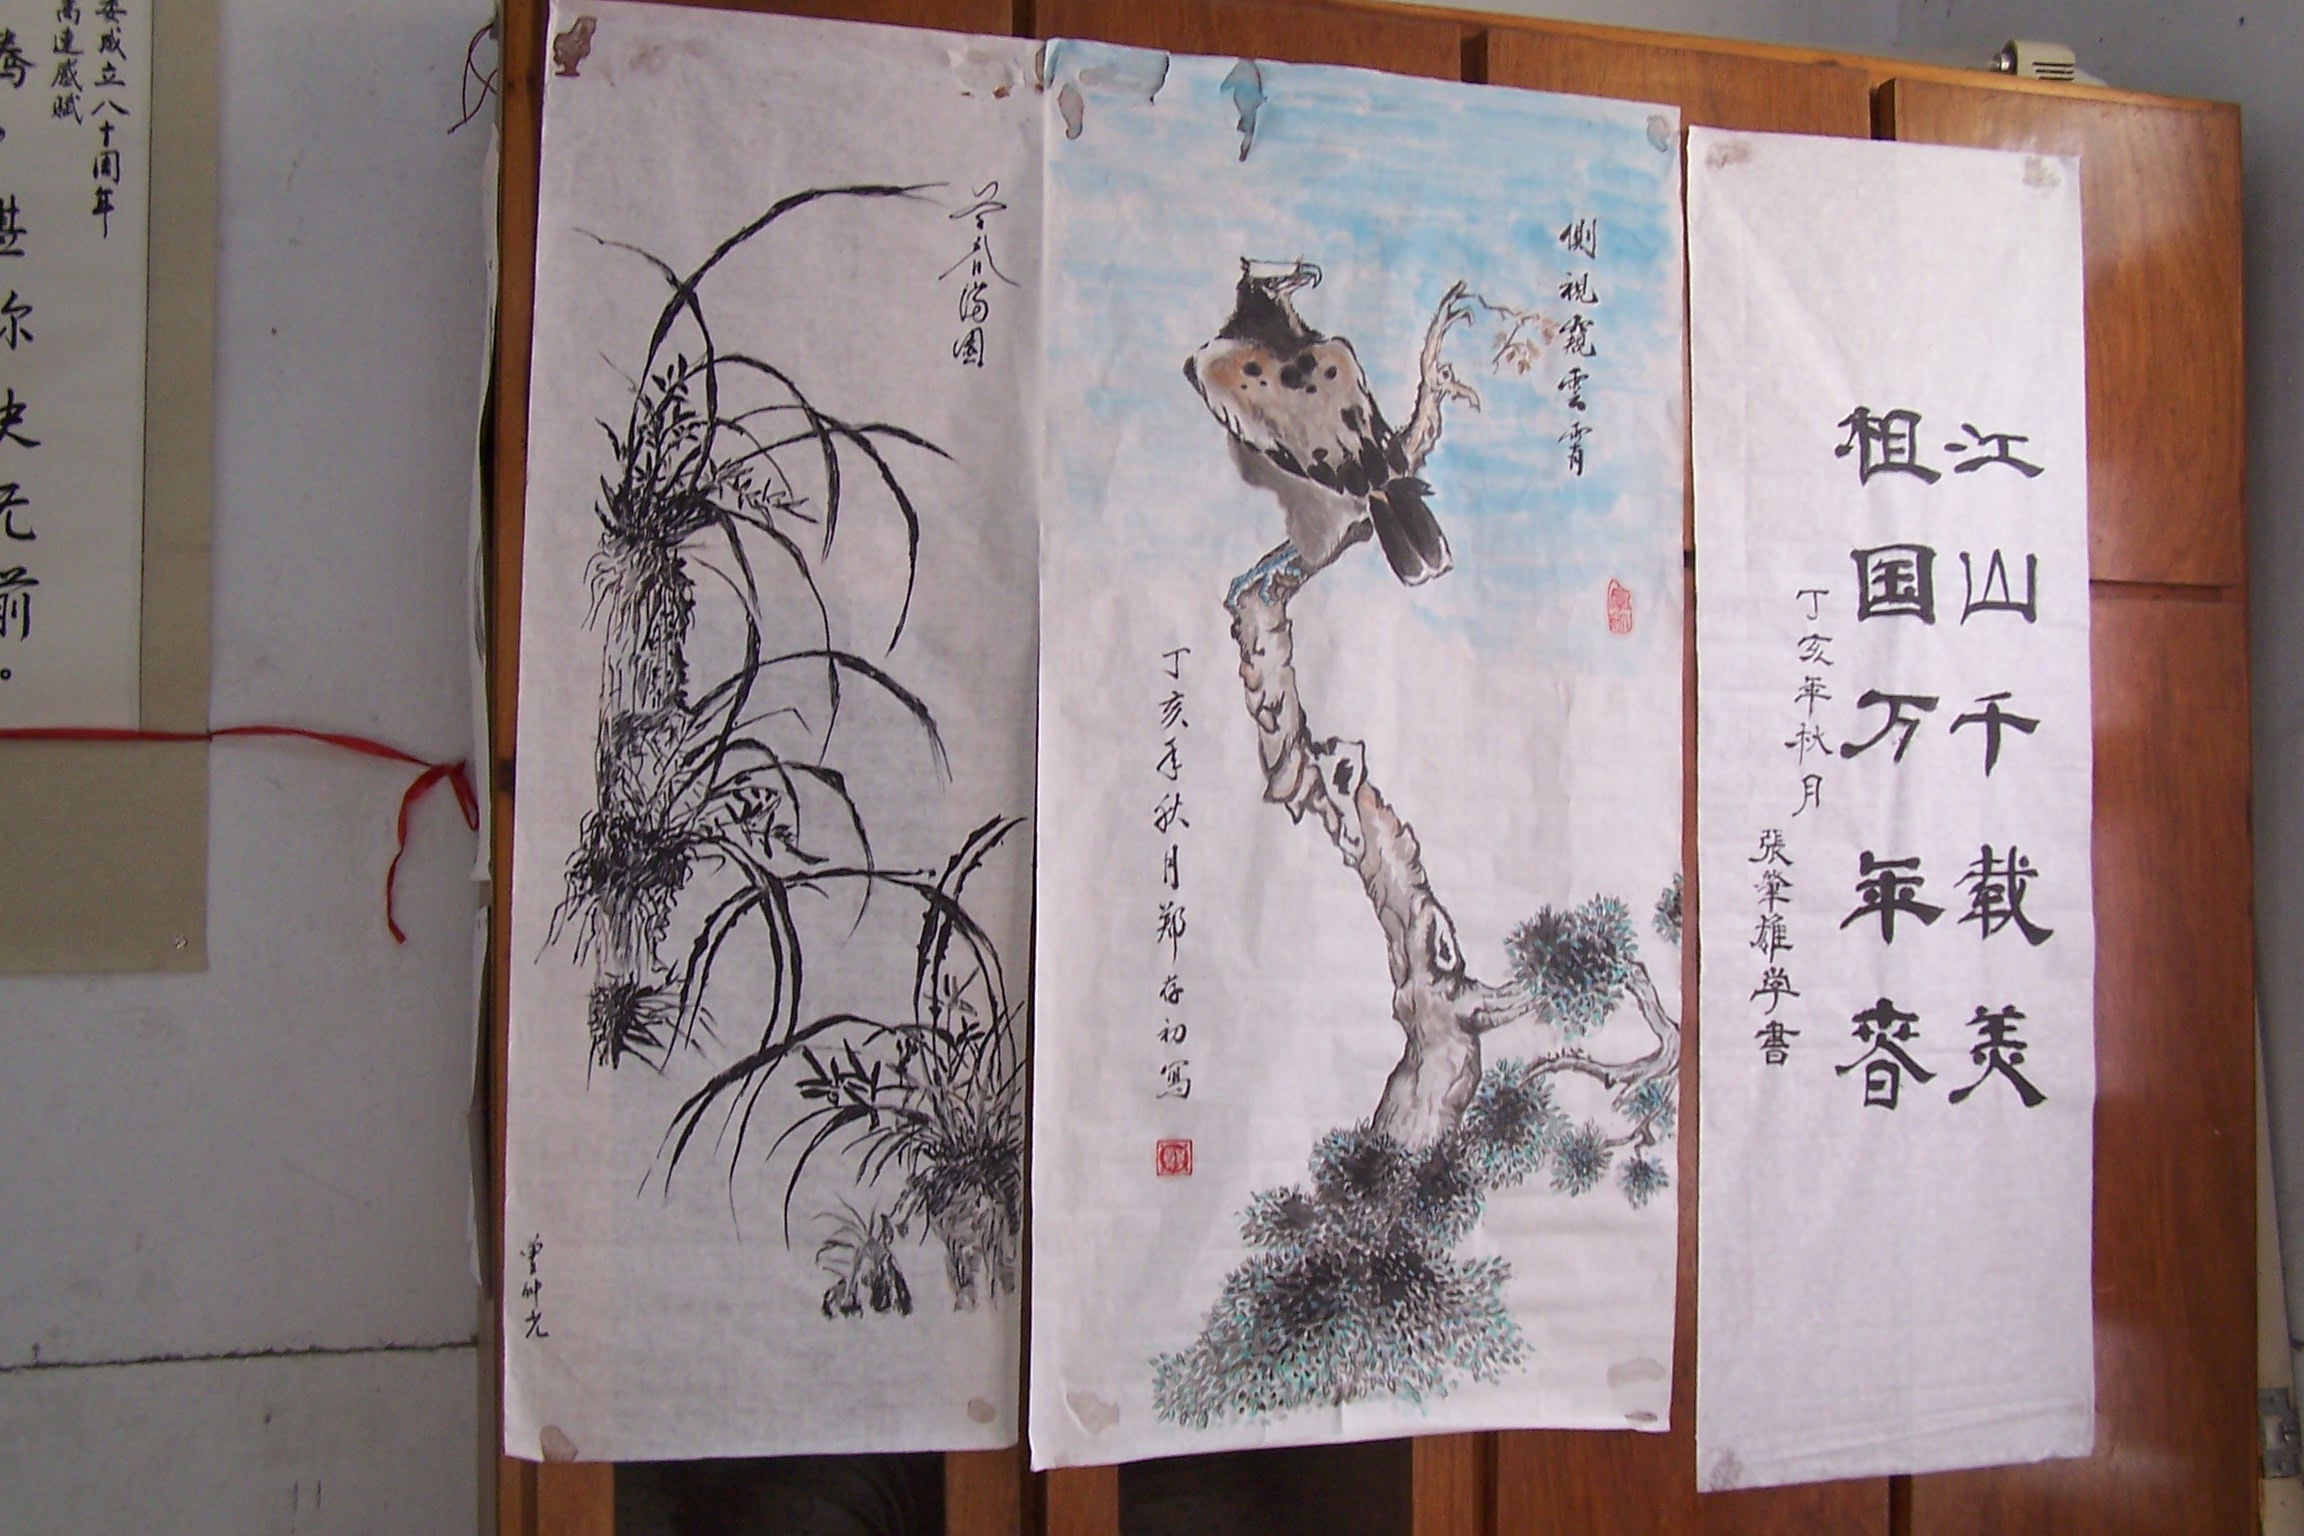 委成立八十周年
高速感赋
腾，堪称史无前。
满园
曹仲光
側視窺雲霄
丁亥年秋月郑存初寫
江山千载美
祖国万年春
丁亥年秋月
張肇雄学書